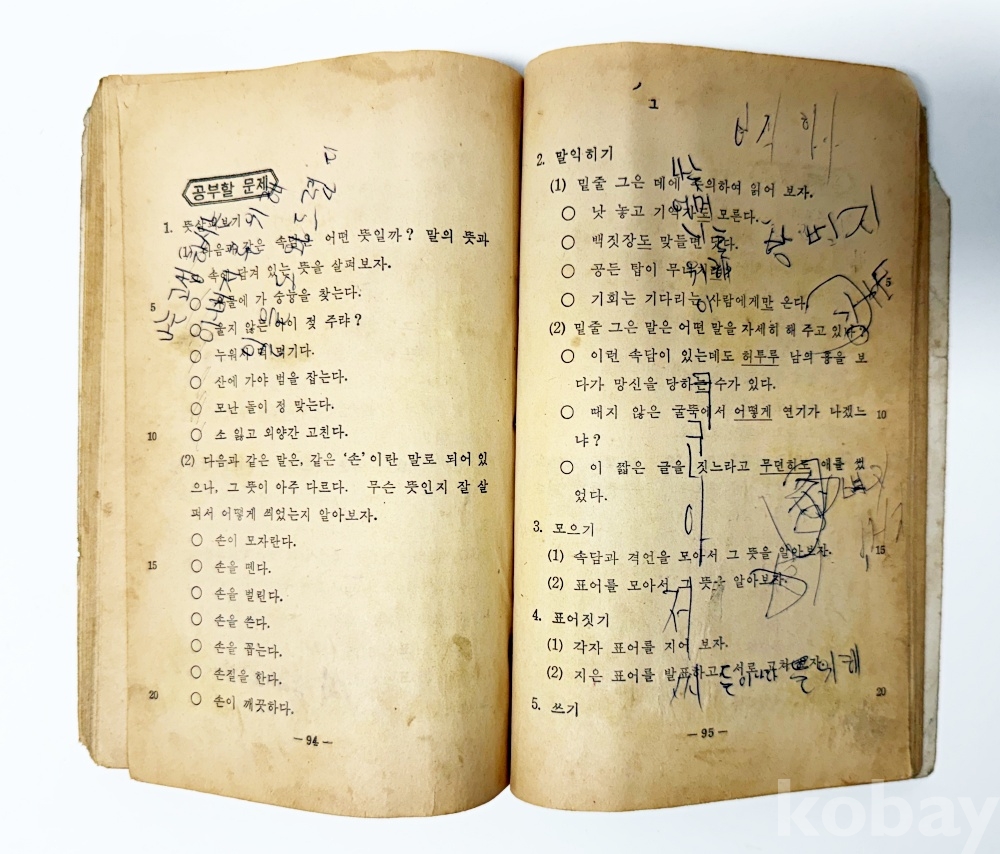 공부할 문제
1. 뜻살펴보기
(1) 다음과 같은 속담은 어떤 뜻일까? 말의 뜻과
속에 담겨 있는 뜻을 살펴보자.
5
○ 우물에 가 숭늉을 찾는다.
○ 울지 않는 아이 젖 주랴?
○ 누워서 떡 먹기다.
○ 산에 가야 범을 잡는다.
○ 모난 돌이 정 맞는다.
10
○ 소 잃고 외양간 고친다.
(2) 다음과 같은 말은, 같은 ‘손’이란 말로 되어 있
으나, 그 뜻이 아주 다르다. 무슨 뜻인지 잘 살
펴서 어떻게 씌었는지 알아보자.
○ 손이 모자란다.
15
○ 손을 뗀다.
○ 손을 벌린다.
○ 손을 쓴다.
○ 손을 꼽는다.
○ 손질을 한다.
20
○ 손이 깨끗하다.
— 94 —
1
2. 말익히기
(1) 밑줄 그은 데에 주의하여 읽어 보자.
○ 낫 놓고 기역자도 모른다.
○ 백짓장도 맞들면 낫다.
○ 공든 탑이 무너지랴?
5
○ 기회는 기다리는 사람에게만 온다.
(2) 밑줄 그은 말은 어떤 말을 자세히 해 주고 있나?
○ 이런 속담이 있는데도 허투루 남의 흉을 보
다가 망신을 당하는 수가 있다.
○ 때지 않은 굴뚝에서 어떻게 연기가 나겠느
10
냐?
○ 이 짧은 글을 짓느라고 무던히도 애를 썼
었다.
3. 모으기
(1) 속담과 격언을 모아서 그 뜻을 알아보자.
15
(2) 표어를 모아서 그 뜻을 알아보자.
4. 표어짓기
(1) 각자 표어를 지어 보자.
(2) 지은 표어를 발표하고, 서로
20
5. 쓰기
— 95 —
kobay